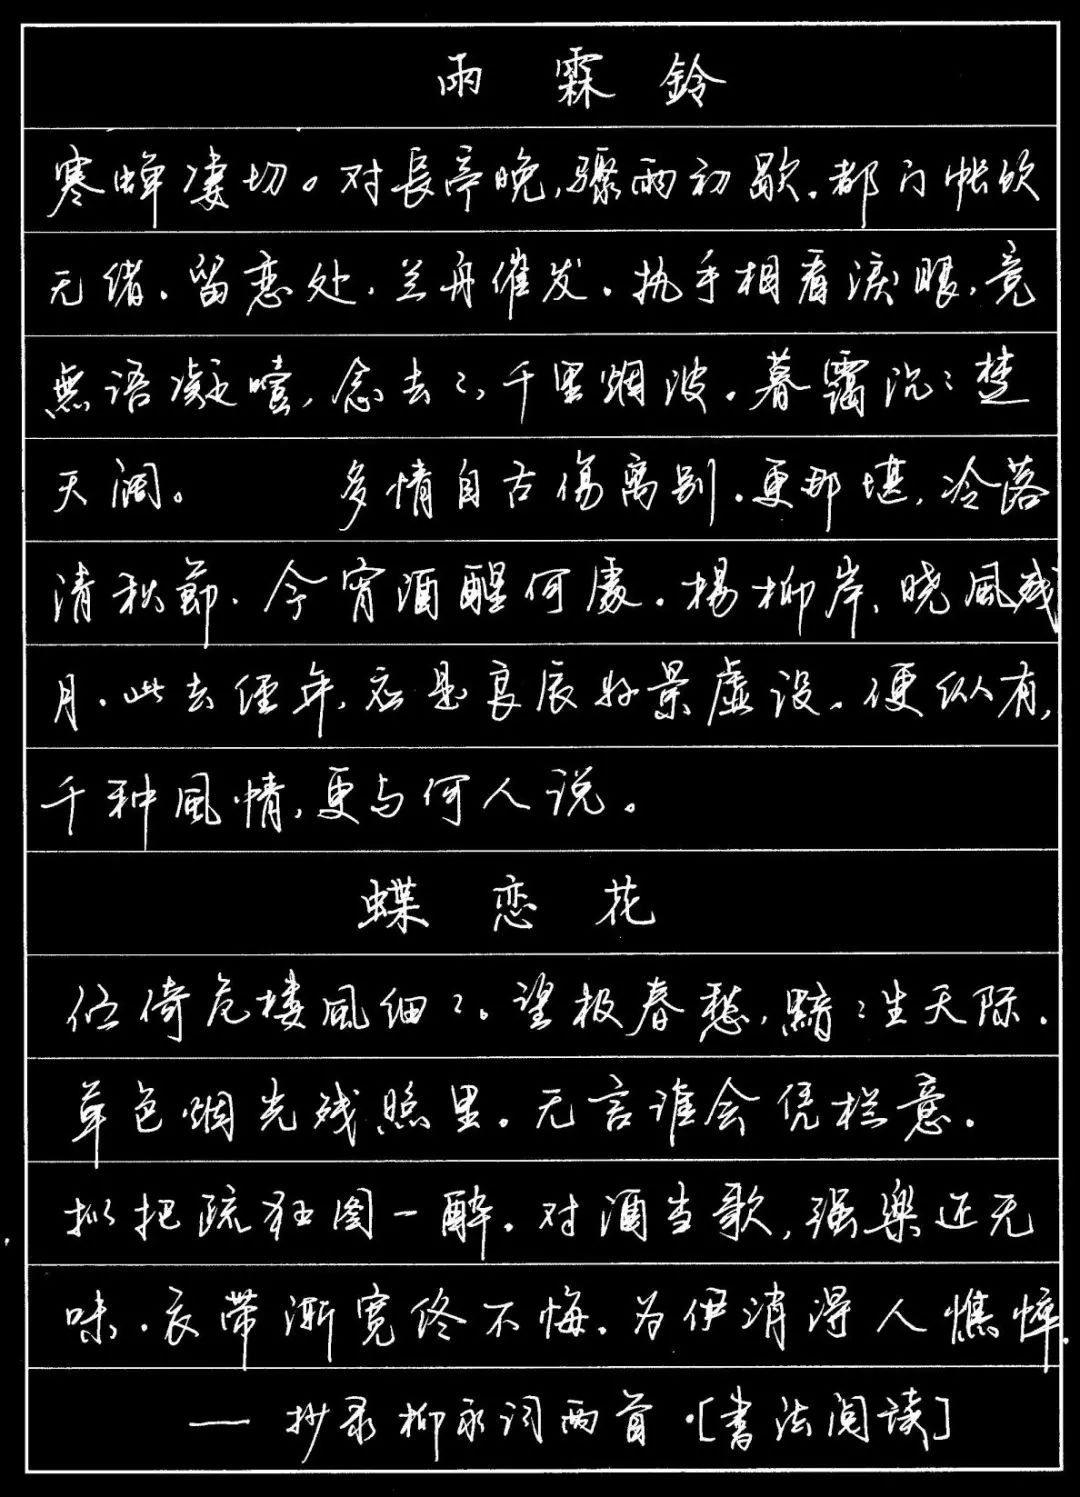 雨霖鈴
寒蝉凄切。对長亭晚,骤雨初歇.都门帐饮
无绪.留恋处.兰舟催发.执手相看淚眼,竟
無语凝噎,念去〻,千里烟波.暮靄沉〻楚
天阔。 多情自古傷离别.更那堪,冷落
清秋節.今宵酒醒何處.楊柳岸,晓風残
月.此去经年,应是良辰好景虚设.便纵有,
千种風情,更与何人说。
蝶恋花
伫倚危楼風细〻。望极春愁,黯〻生天际.
草色烟光残照里.无言谁会凭栏意.
拟把疏狂图一醉.对酒当歌,强樂还无
味.衣带渐宽终不悔.为伊消得人憔悴.
——抄录柳永词两首.[书法阅读]